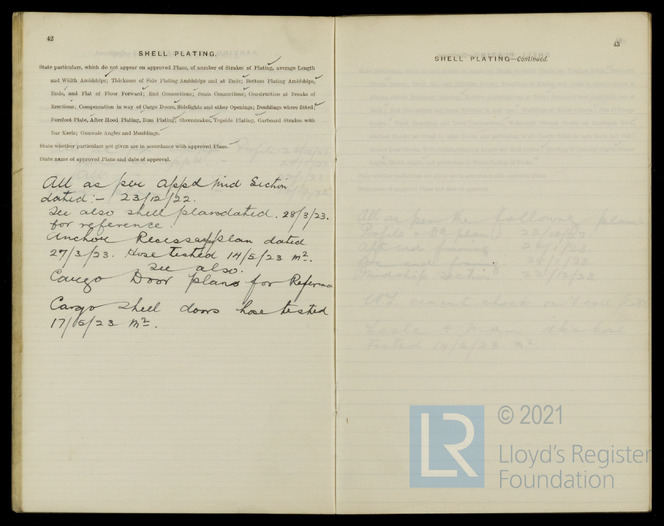 42
SHELL PLATING.
State particulars, which do not appear on approved Plans, of number of Strakes of Plating, average Length
and Width Amidships; Thickness of Side Plating Amidships and at Ends; Bottom Plating Amidships,
Ends, and Flat of Floor Forward; End Connections; Seam Connections; Construction at Breaks of
Erections; Compensation in way of Cargo Doors, Sidelights and other Openings; Doublings where fitted;
Forefoot Plate, After Hood Plating, Boss Plating, Sheerstrakes, Topside Plating, Garboard Strakes with
Bar Keels; Gunwale Angles and Mouldings.
State whether particulars not given are in accordance with approved Plans.
State name of approved Plans and date of approval.
All as per appd mid Section
dated:- 23/12/22.
See also shell plan dated 28/3/23.
for reference
Anchor Recesses plan dated
27/3/23. Hose tested 14/5/23 m².
See also.
Cargo Door plans for Reference
Cargo shell doors hose tested
17/5/23 m².
43
SHELL PLATING—continued.
LR
© 2021
Lloyd's Register
Foundation